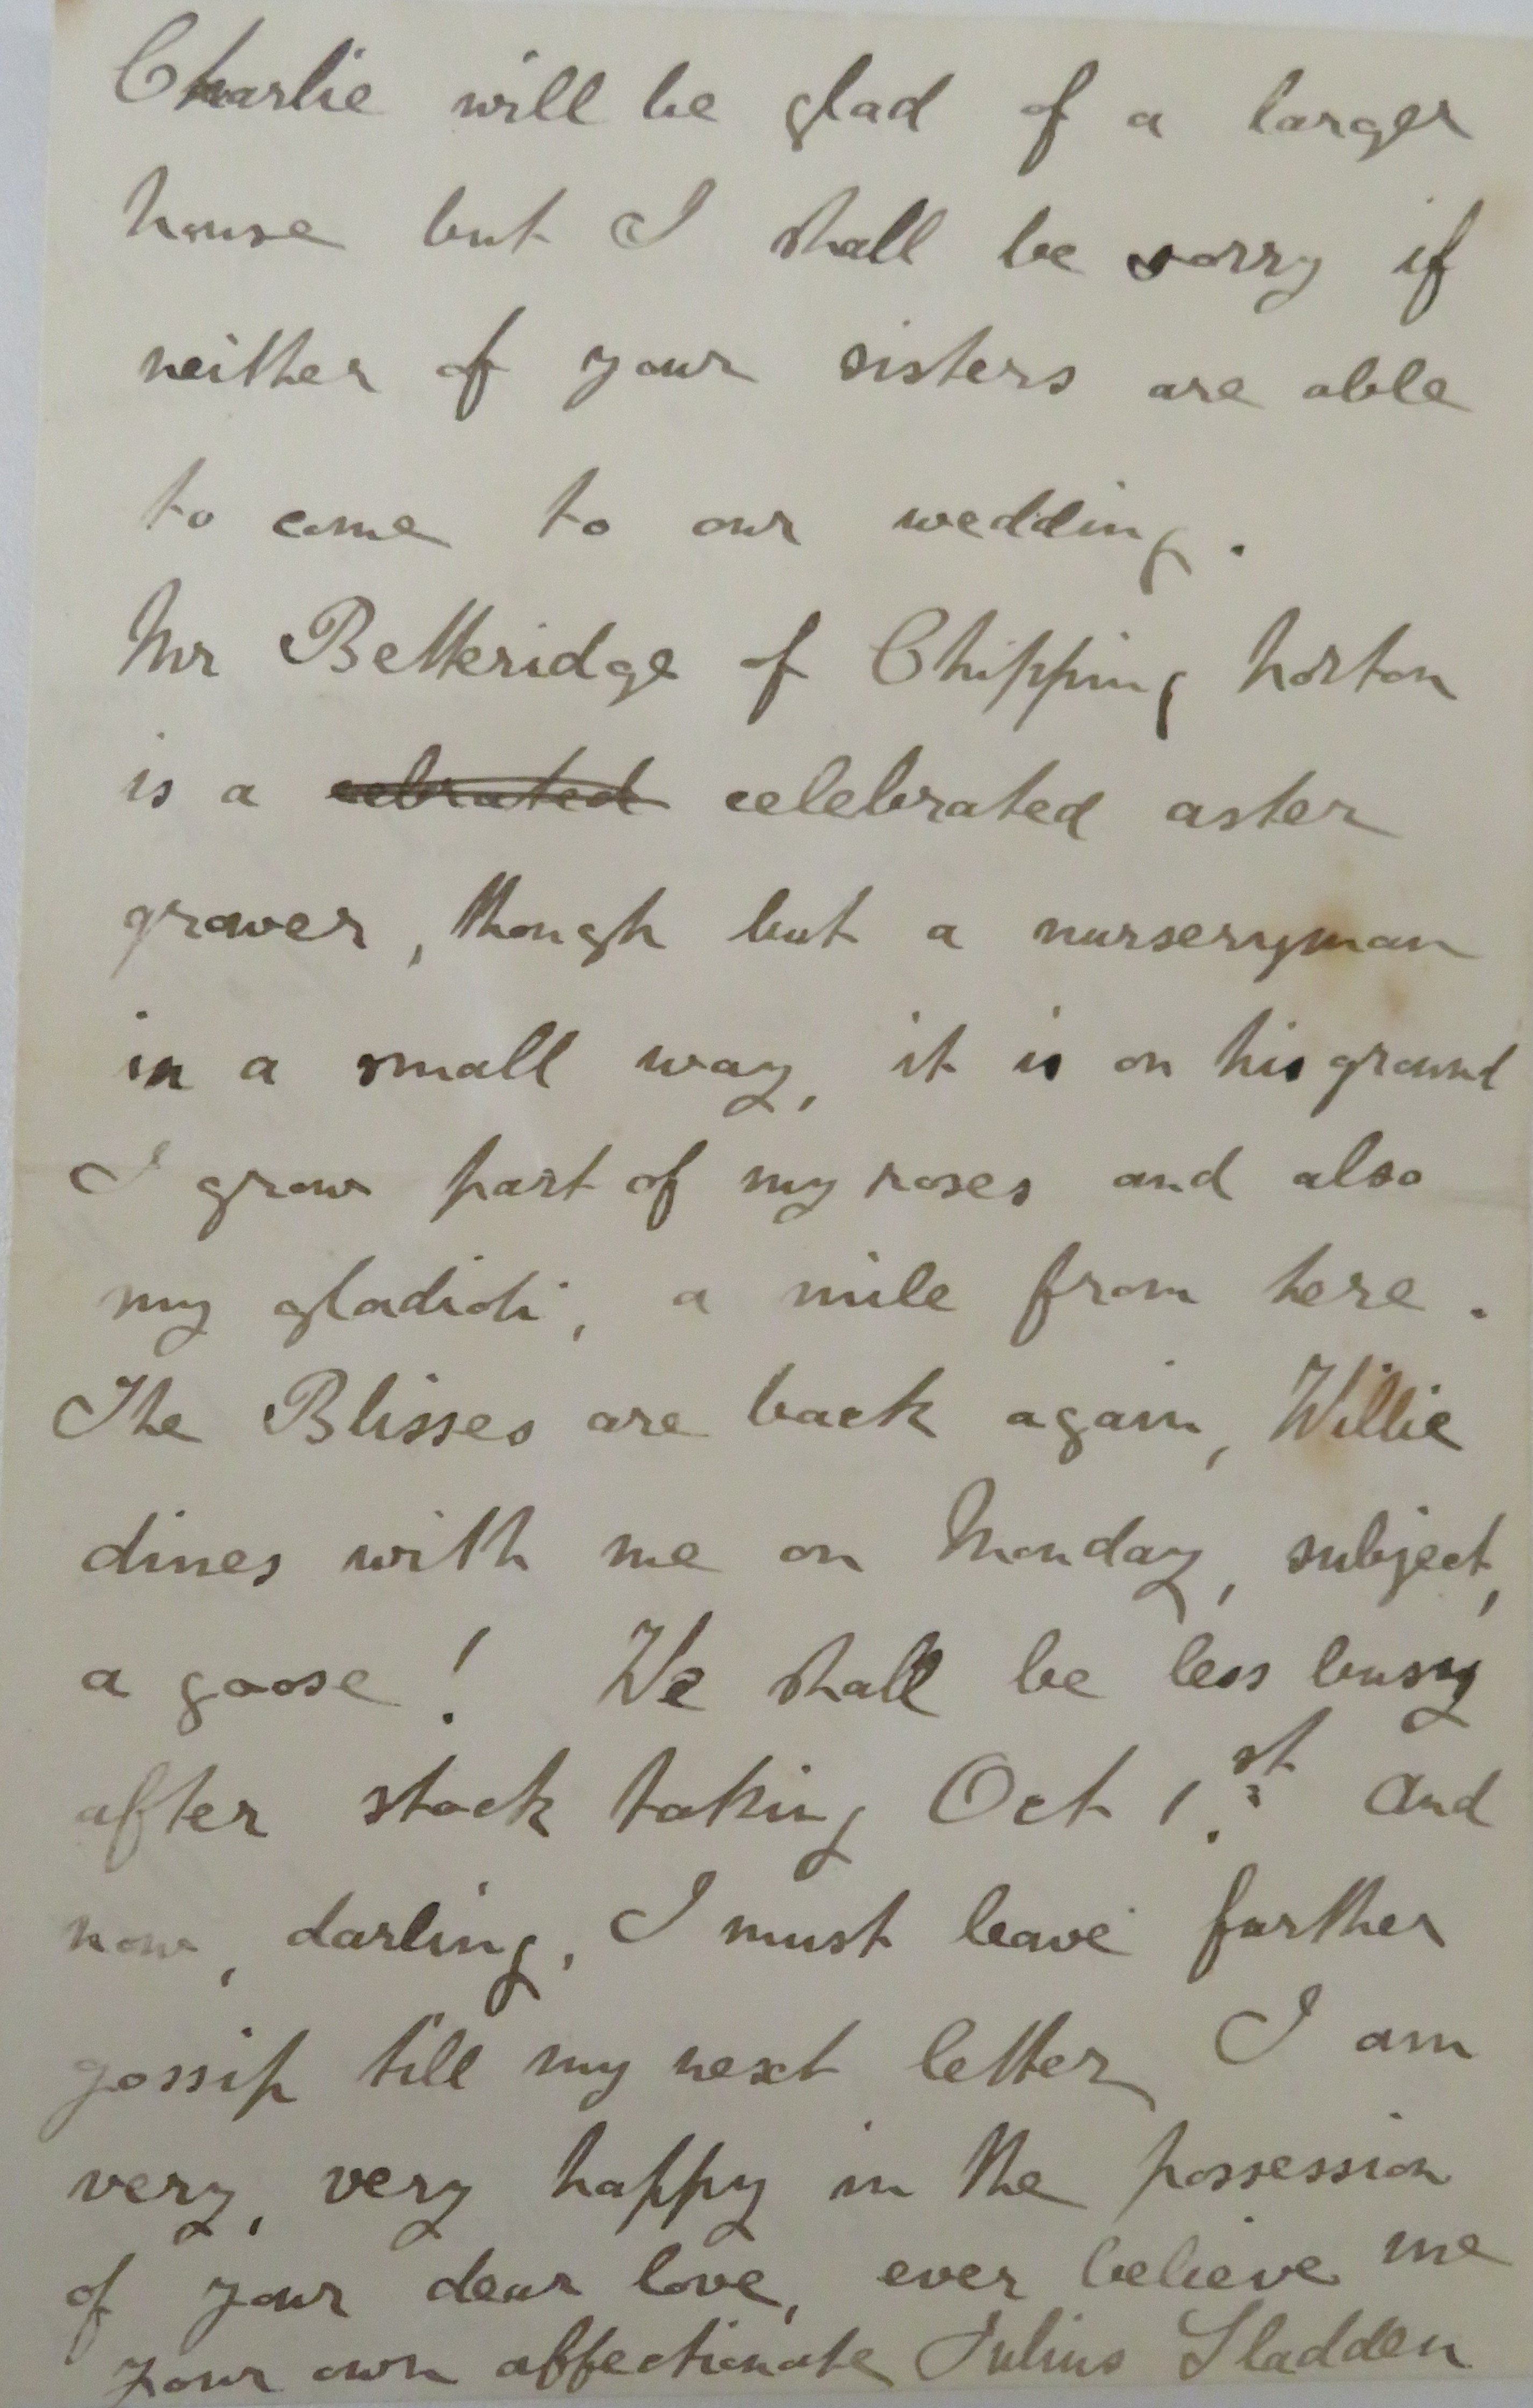 Charlie will be glad of a larger
house but I shall be sorry if
neither of your sisters are able
to come to our wedding.
Mr Betteridge of Chipping Norton
is a celbrated celebrated aster
grower, though but a nurseryman
in a small way, it is on his ground
I grow part of my roses and also
my gladioli, a mile from here.
The Blisses are back again, Willie
dines with me on Monday, subject,
a goose! We shall be less busy
after stock taking Oct 1st. And
now, darling, I must leave further
gossip till my next letter, I am
very, very happy in the possession
of your dear love, ever believe me
your own affectionate Julius Sladden